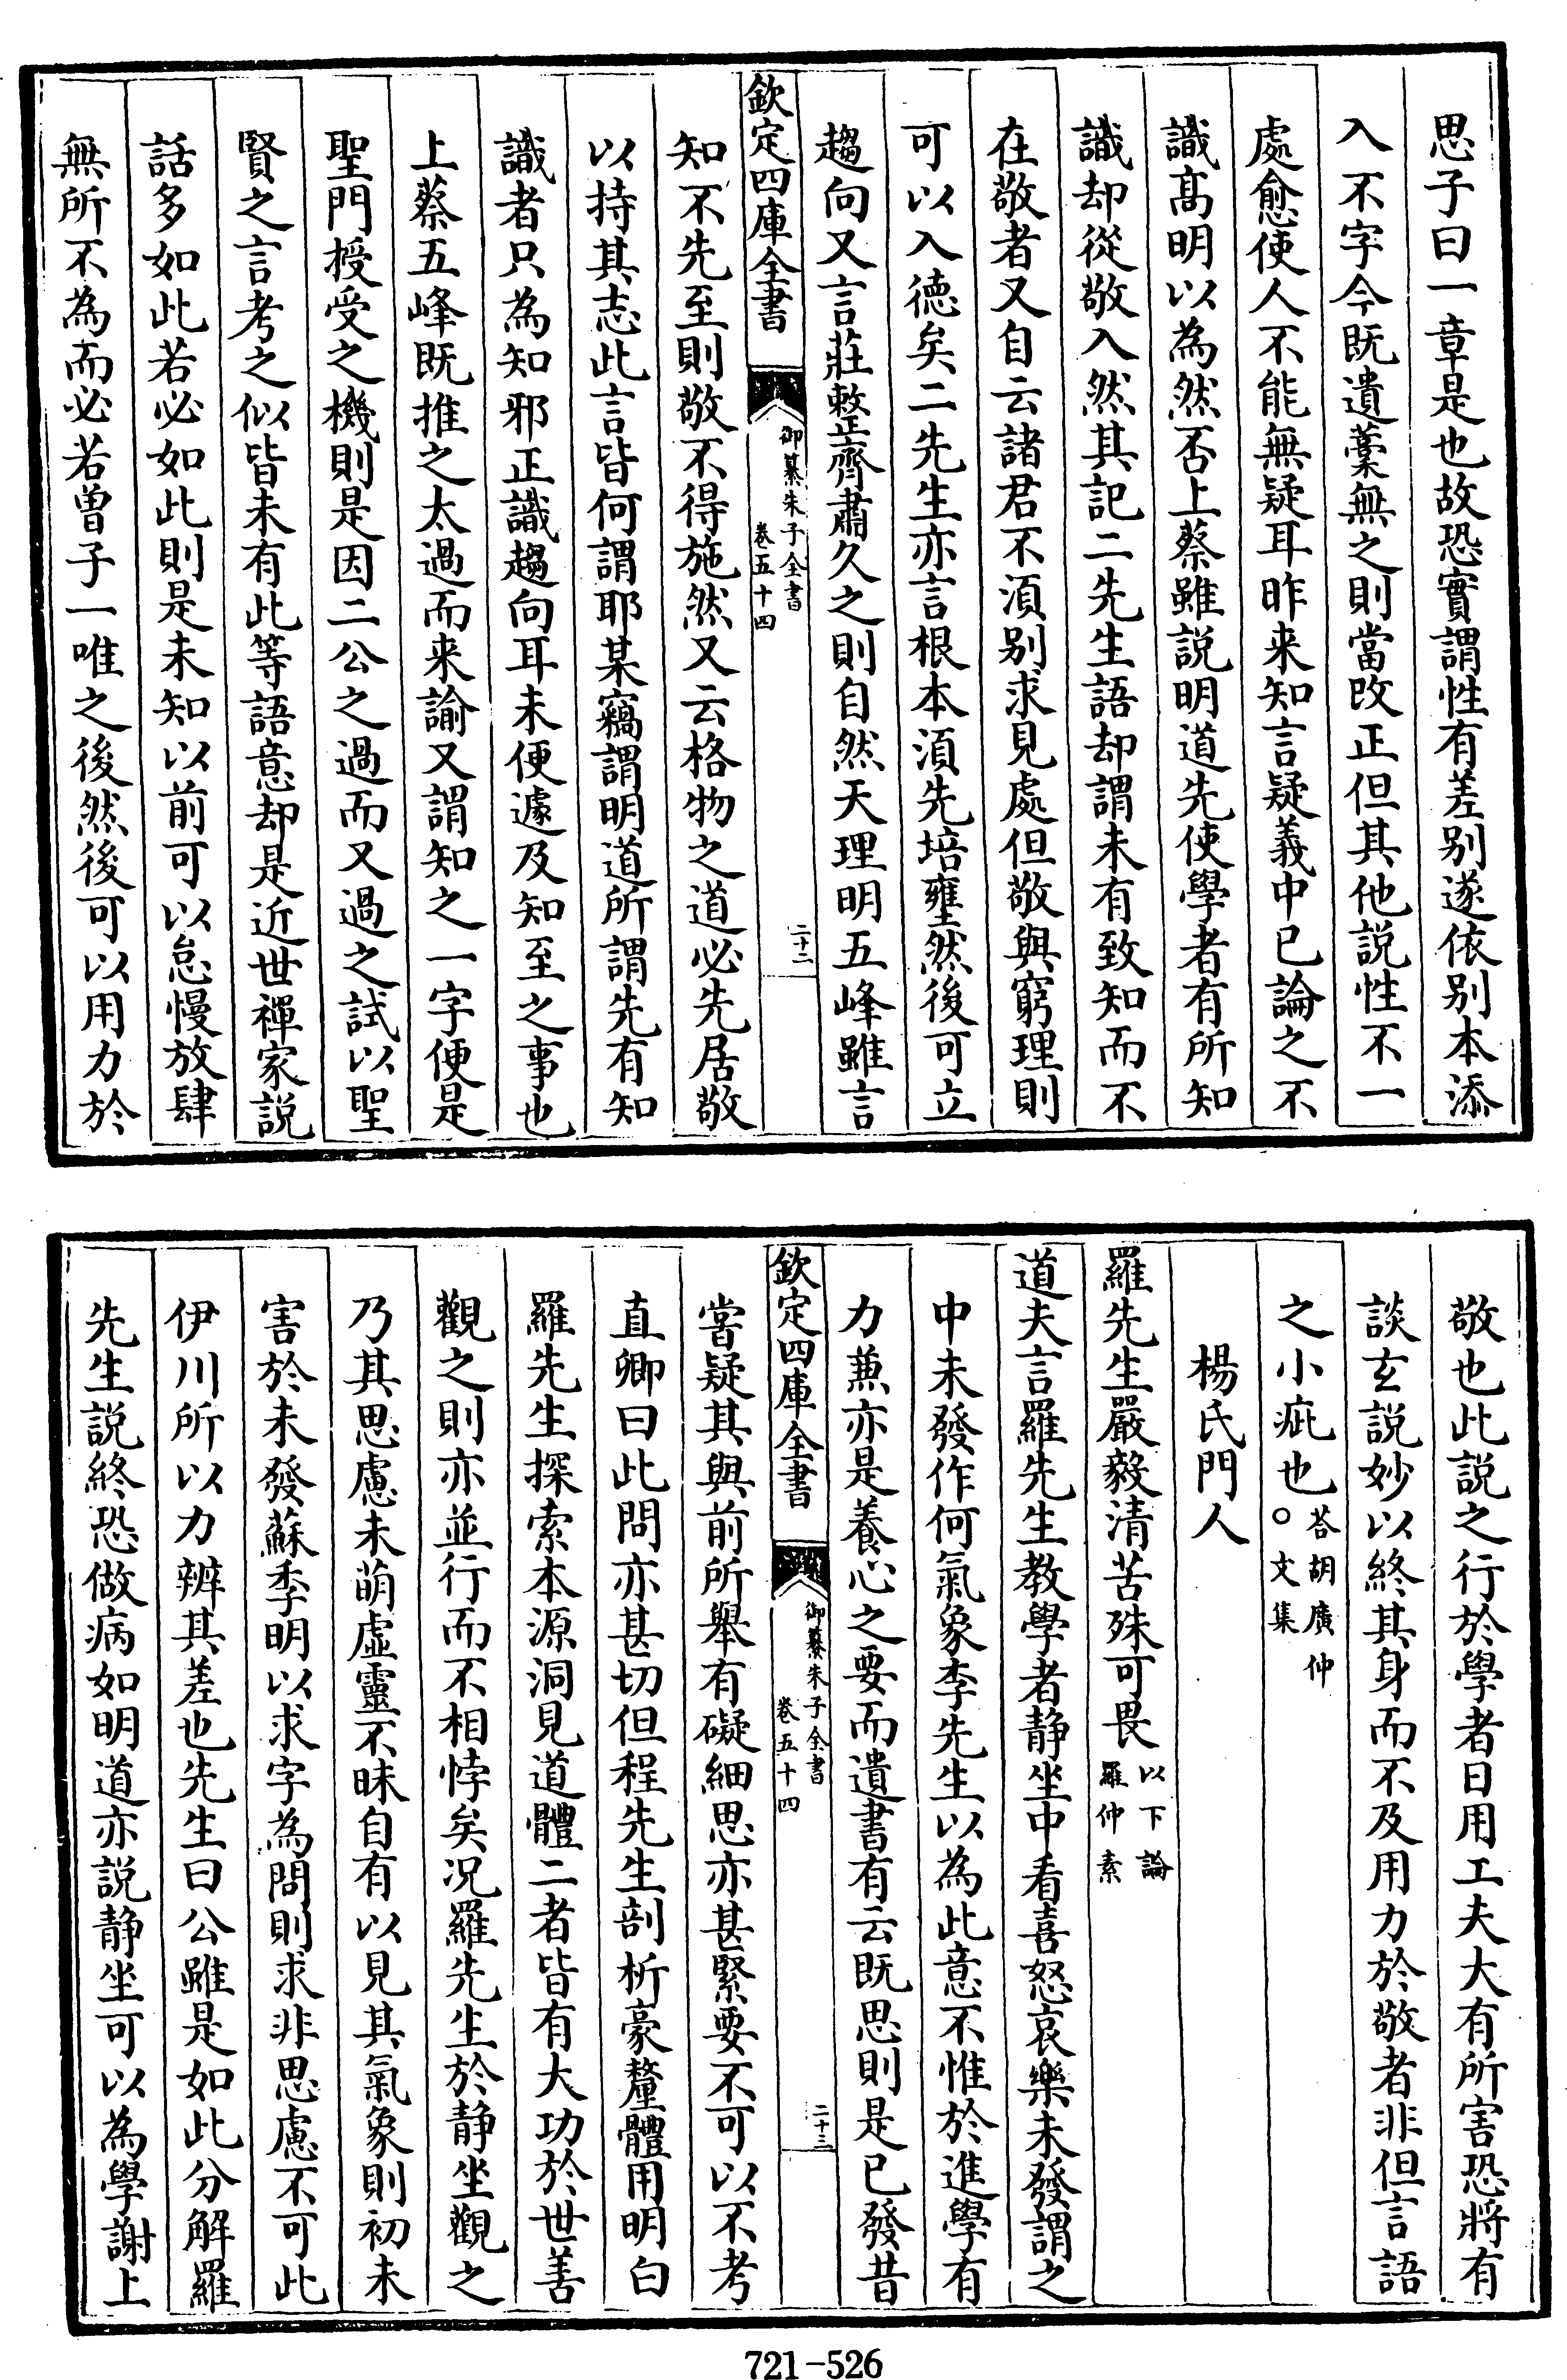 思子曰一章是也故恐實謂性有差别遂依别本添
入不字今既遺藁無之則當改正但其他説性不一
處愈使人不能無疑耳昨来知言疑義中已論之不
識髙明以為然否上蔡雖説明道先使學者有所知
識却從敬入然其記二先生語却謂未有致知而不
在敬者又自云諸君不須别求見處但敬與窮理則
可以入德矣二先生亦言根本須先培壅然後可立
趨向又言莊整齊肅久之則自然天理明五峰雖言
欽定四庫全書
御纂朱子全書
卷五十四
二十二
知不先至則敬不得施然又云格物之道必先居敬
以持其志此言皆何謂耶某竊謂明道所謂先有知
識者只為知邪正識趨向耳未便遽及知至之事也
上蔡五峰既推之太過而来諭又謂知之一字便是
聖門授受之機則是因二公之過而又過之試以聖
賢之言考之似皆未有此等語意却是近世禪家説
話多如此若必如此則是未知以前可以怠慢放肆
無所不為而必若曽子一唯之後然後可以用力於
敬也此説之行於學者日用工夫大有所害恐將有
談玄説妙以終其身而不及用力於敬者非但言語
之小疵也○荅胡廣仲文集
楊氏門人
羅先生嚴毅清苦殊可畏以下論羅仲素
道夫言羅先生教學者静坐中看喜怒哀樂未發謂之
中未發作何氣象李先生以為此意不惟於進學有
力兼亦是養心之要而遺書有云既思則是已發昔
欽定四庫全書
御纂朱子全書
卷五十四
二十三
嘗疑其與前所舉有礙細思亦甚緊要不可以不考
直卿曰此問亦甚切但程先生剖析豪釐體用明白
羅先生探索本源洞見道體二者皆有大功於世善
觀之則亦並行而不相悖矣况羅先生於静坐觀之
乃其思慮未萌虚靈不昧自有以見其氣象則初未
害於未發蘇季明以求字為問則求非思慮不可此
伊川所以力辨其差也先生曰公雖是如此分解羅
先生説終恐做病如明道亦説静坐可以為學謝上
721-526